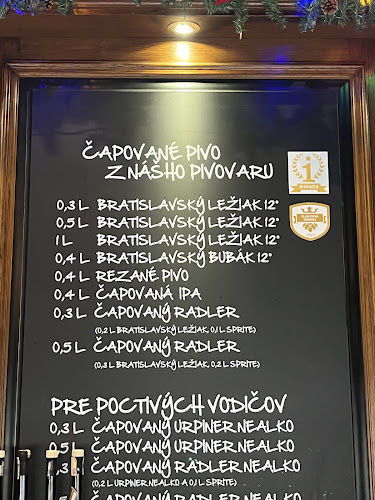 ČAPOVANÉ PIVO
Z NÁŠHO PIVOVARU
1
WINNER
0,3 L BRATISLAVSKÝ LEŽIAK 12°
0,5 L BRATISLAVSKÝ LEŽIAK 12°
1 L BRATISLAVSKÝ LEŽIAK 12°
0,4 L BRATISLAVSKÝ BUBÁK 12°
0,4 L REZANÉ PIVO
0,4 L ČAPOVANÁ IPA
0,3 L ČAPOVANÝ RADLER
(0,2 L BRATISLAVSKÝ LEŽIAK, 0,1 L SPRITE)
0,5 L ČAPOVANÝ RADLER
(0,3 L BRATISLAVSKÝ LEŽIAK, 0,2 L SPRITE)
PRE POCTIVÝCH VODIČOV
0,3 L ČAPOVANÝ URPINER NEALKO
0,5 L ČAPOVANÝ URPINER NEALKO
0,3 L ČAPOVANÝ RADLER NEALKO
(0,2 L URPINER NEALKO A 0,1 L SPRITE)
ČAPOVANÝ RADLER NEALKO